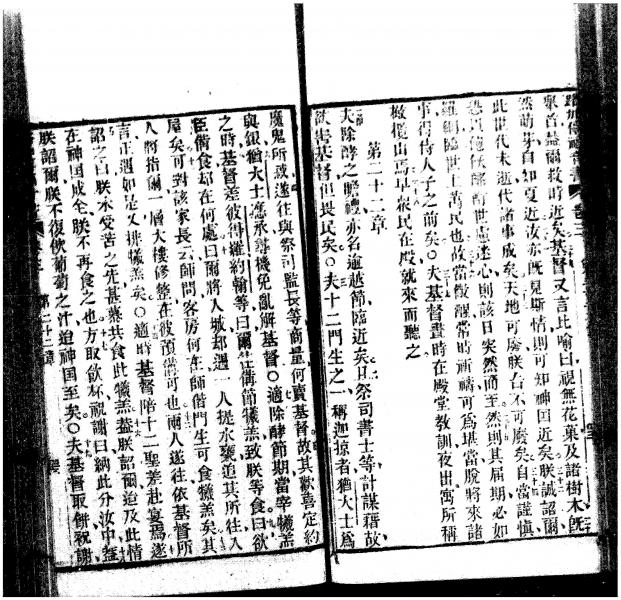 舉首益爾救時近矣基督又言比喻曰視無花菓及諸樹木旣
然萌芽自知夏近汝亦旣見斯情則可知神國近矣朕誠詔爾
此世代未逝代諸事成矣天地可廢朕言不可廢矣自當謹慎
世迷心則該日突然而至然則其届期必如
羅網臨世上萬民也故當儆醒常時祈禱可爲堪當脫將來諸
事得侍人子之前矣○夫基督晝時在殿堂教訓夜出寓所稱
橄欖山焉早衆民在殿就來而聽之
第二十二章
夫除酵之瞻禮亦名逾越節臨近矣且祭司書士等計謀藉故
弑害基督但畏民矣○夫十二門生之一稱迦掠者猶大士爲
魔鬼所或遂往與祭司監長等商量何賣基督故其歡喜定約
與銀猶大士應承尋機免亂解基督○適除酵節期當宰犧羔
之時基督差彼得羅約翰等曰爾往備節犧羔致朕等食曰欲
臣備食却在何處曰爾將人城却遇一人提水甕追其所往入
屋矣可對該家長云師問客房何在師偕門生可食犧羔矣其
人將指爾一層大樓修整在彼預備可也兩人遂往依基督所
言正遇如是又排犧羔矣○適時基督陪十二聖差赴宴焉遂
詔之曰朕未受苦之先甚慕共食此犧羔益朕詔爾迨及此情
在神國成全朕不再食之也方取飲杯祝謝曰納此分汝中益
朕詔爾朕不復飲葡萄之汁迨神國至矣○夫基督取餅祝謝
第二十二章